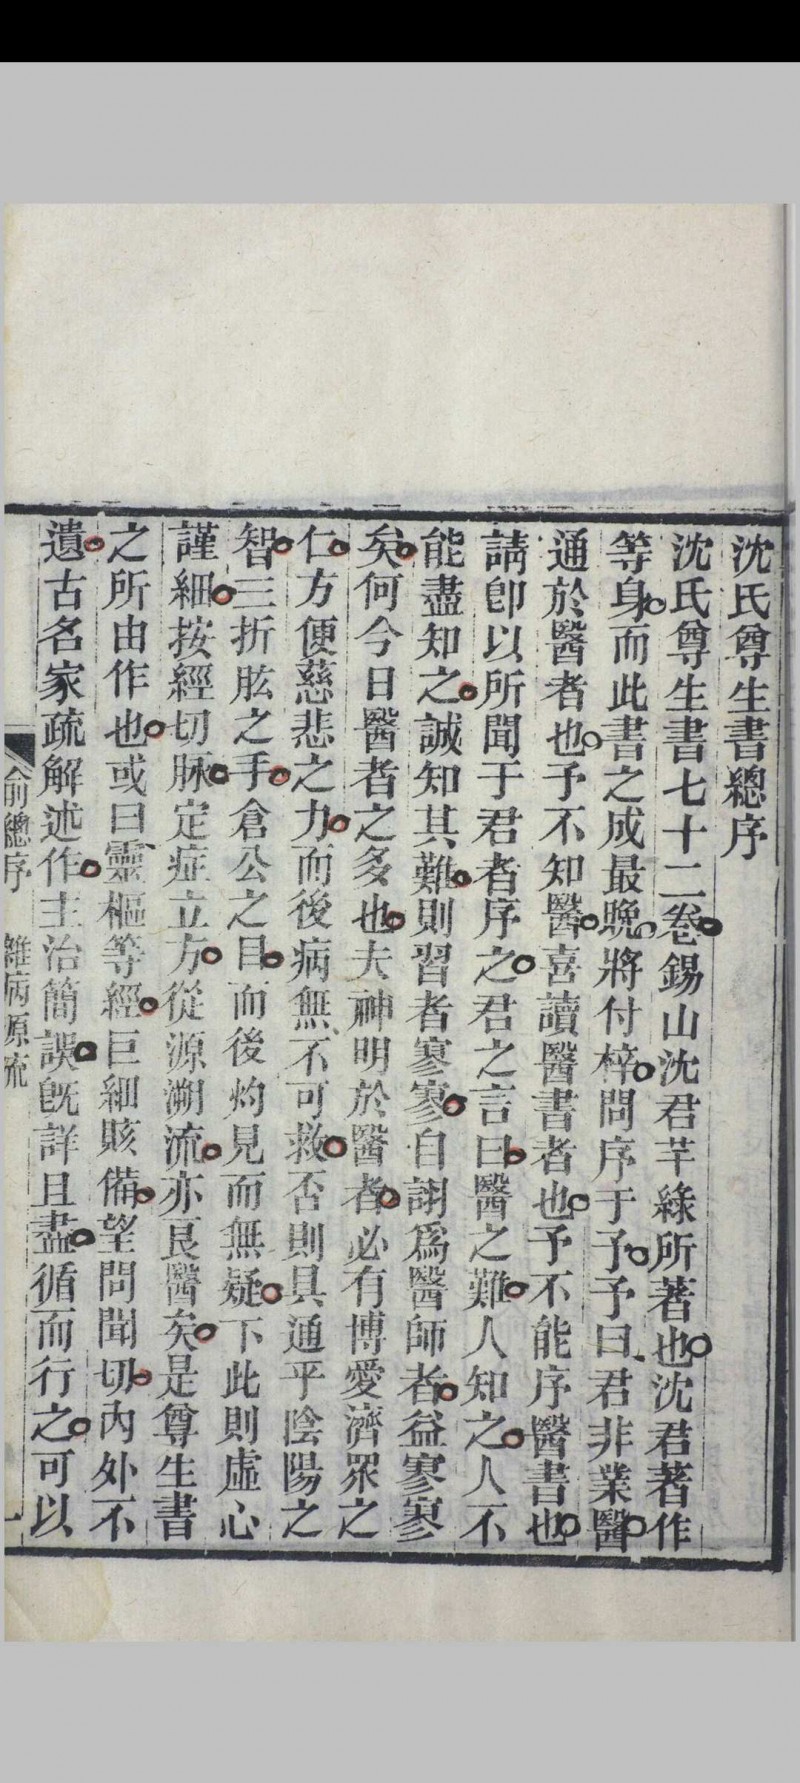 沈氏尊生書總序
沈氏尊生書七十二卷錫山沈君芊綠所著也沈君著作
等身而此書之成最晚將付梓問序于予予曰君非業醫
通於醫者也予不知醫喜讀醫書者也予不能序醫書也
請卽以所聞于君者序之君之言曰醫之難人知之人不
能盡知之誠知其難則習者寥寥自詡爲醫師者益寥寥
矣何今日醫者之多也夫神明於醫者必有博愛濟眾之
仁方便慈悲之力而後病無不可救否則具通乎陰陽之
智三折肱之手倉公之目而後灼見而無疑下此則虛心
謹細按經切脉定症立方從源溯流亦良醫矣是尊生書
之所由作也或曰靈樞等經巨細賅備望問聞切內外不
遺古名家疏解述作主治簡誤旣詳且盡循而行之可以
俞總序 雜病源流 一